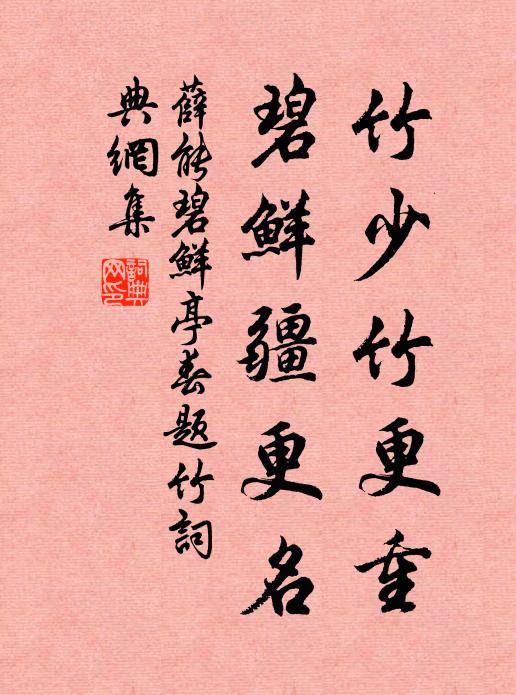 竹少竹更重
碧鮮疆更名
薛能碧鮮亭春題竹詞
典網集
詞典
网印